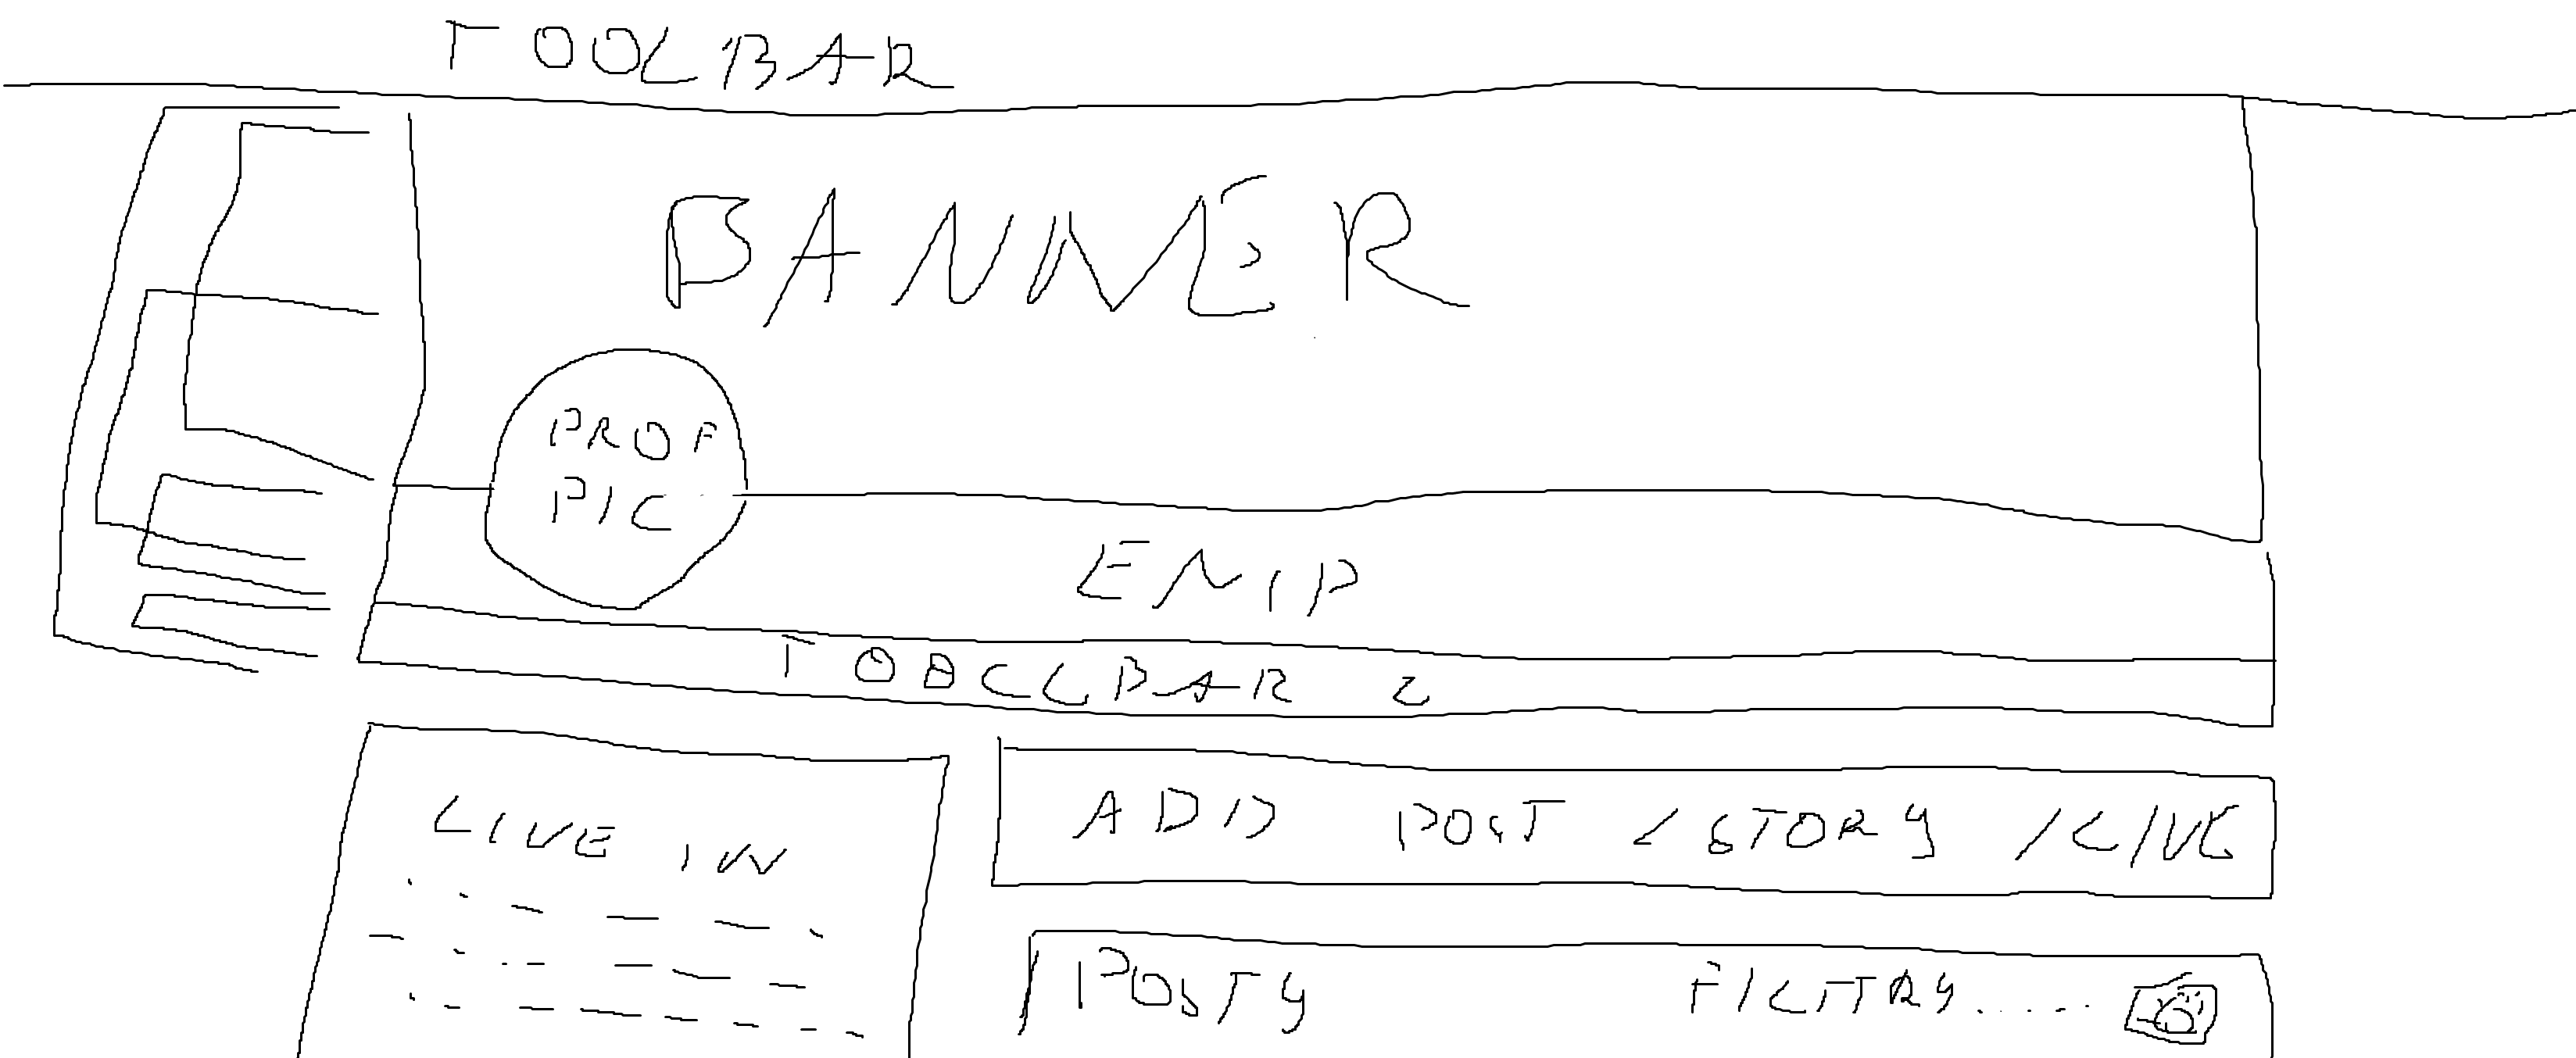 TOOLBAR
BANNER
PROF
PIC
EMIP
TOOLBAR 2
LIVE IN
ADD POST / STORY / LIVE
POSTY FILTRY.....